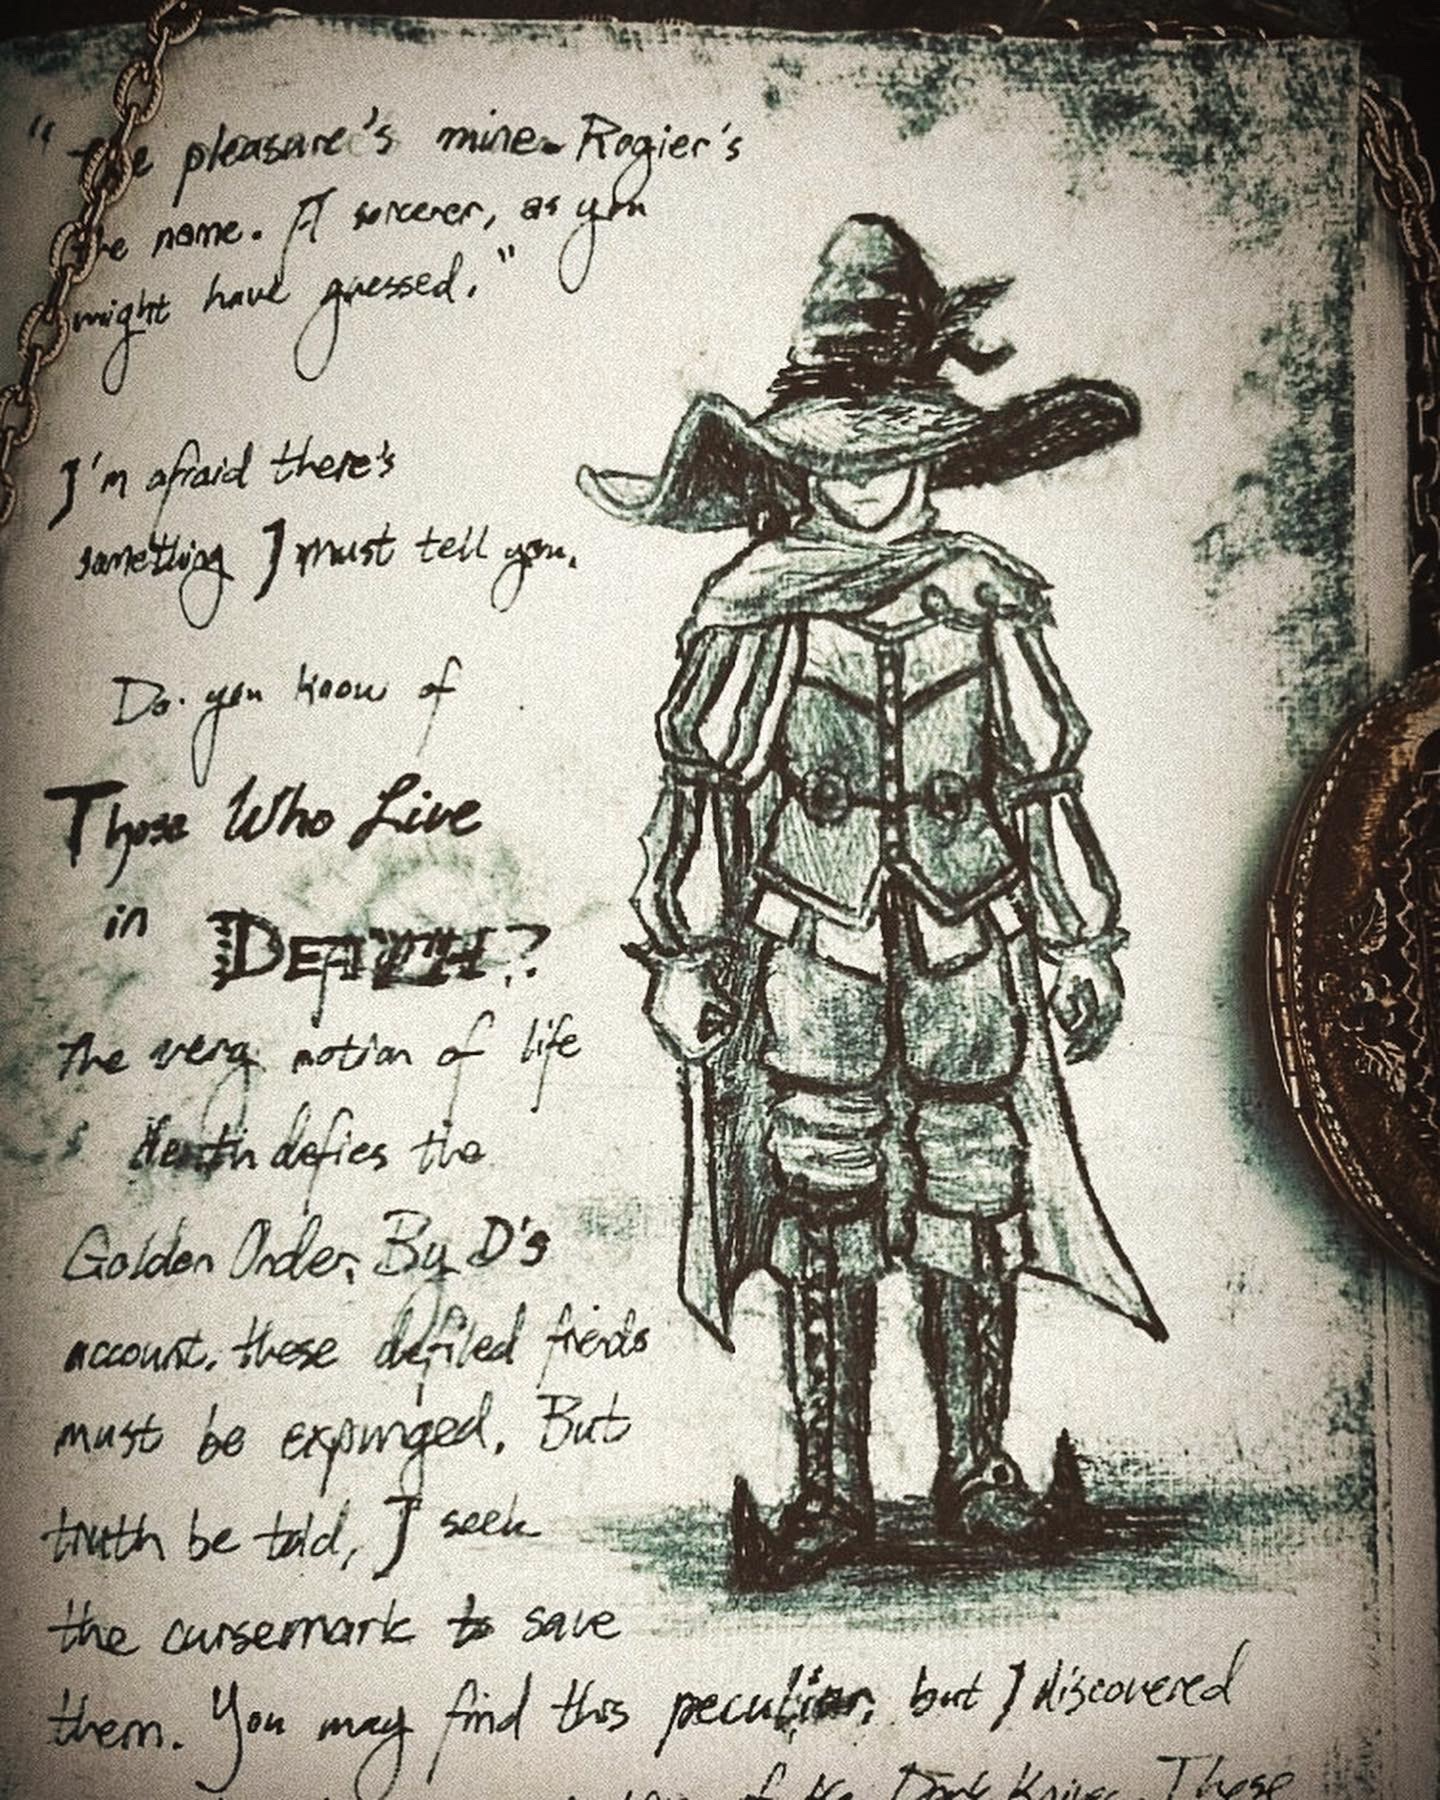 "The pleasure's mine. Rogier's
the name. A sorcerer, as you
might have guessed."
I'm afraid there's
something I must tell you.
Do you know of
Those Who Live
in DEATH?
The very notion of life
death defies the
Golden Order. By D's
account, these defiled fiends
must be expunged. But
truth be told, I seek
the cursemark to save
them. You may find this peculiar, but I discovered
of the These